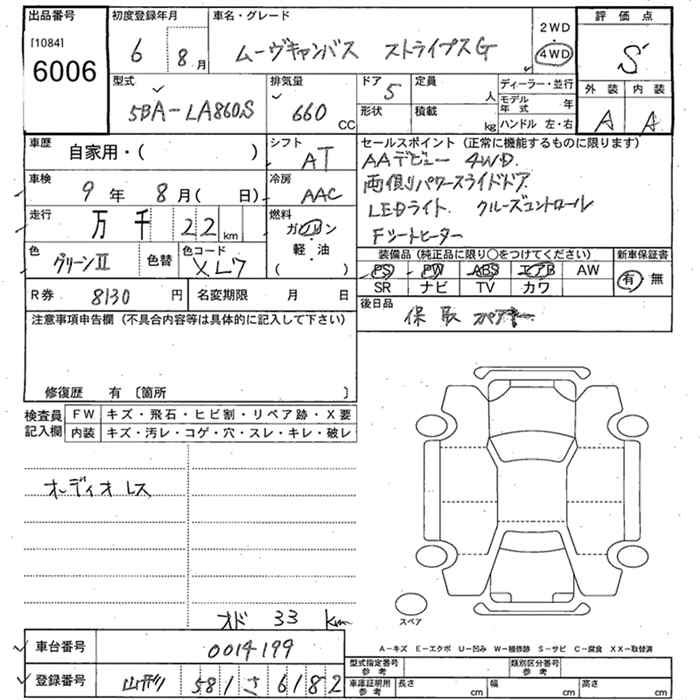 出品番号
[1084]
6006
初度登録年月
6 8月
車名・グレード
ムーヴキャンバス ストライプスG
2WD
4WD
評価点
S
外装 内装
A A
型式
5BA-LA860S
排気量
660 CC
ドア 5
定員 人
形状
積載 kg
ディーラー・並行
モデル年式 年
ハンドル 左・右
車歴
自家用・( )
シフト
AT
セールスポイント(正常に機能するものに限ります)
AAデビュー 4WD.
両側パワースライドドア
LEDライト. クルーズコントロール
Fシートヒーター
車検
9年 8月( 日)
冷房
AAC
走行
万千 22km
燃料
ガソリン
軽・油
( )
色
グリーンII
色替
色コード
XL7
装備品(純正品に限り○をつけてください)
PS PW ABS エアB AW
SR ナビ TV カワ
新車保証書
有 無
R券 8130円
名変期限 月 日
後日品
保 取 スペアキー
注意事項申告欄(不具合内容等は具体的に記入して下さい)
修復歴 有〔箇所 〕
検査員記入欄
FW キズ・飛石・ヒビ割・リペア跡・X要
内装 キズ・汚レ・コゲ・穴・スレ・キレ・破レ
オーディオレス
オド 33 Km
スペア
A-キズ E-エクボ U-凹み W-補修跡 S-サビ C-腐食 XX-取替済
車台番号 0014199
登録番号 山形 581 さ 6182
型式指定番号 参考
類別区分番号 参考
車庫証明用 参考
長さ cm 幅 cm 高さ cm